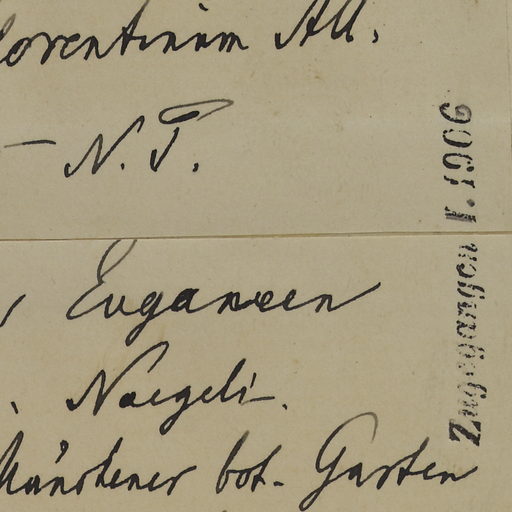 florentinum All.
— N. T.
Euganeen
Naegeli.
Münchener bot. Garten
Zugegangen I. 1906